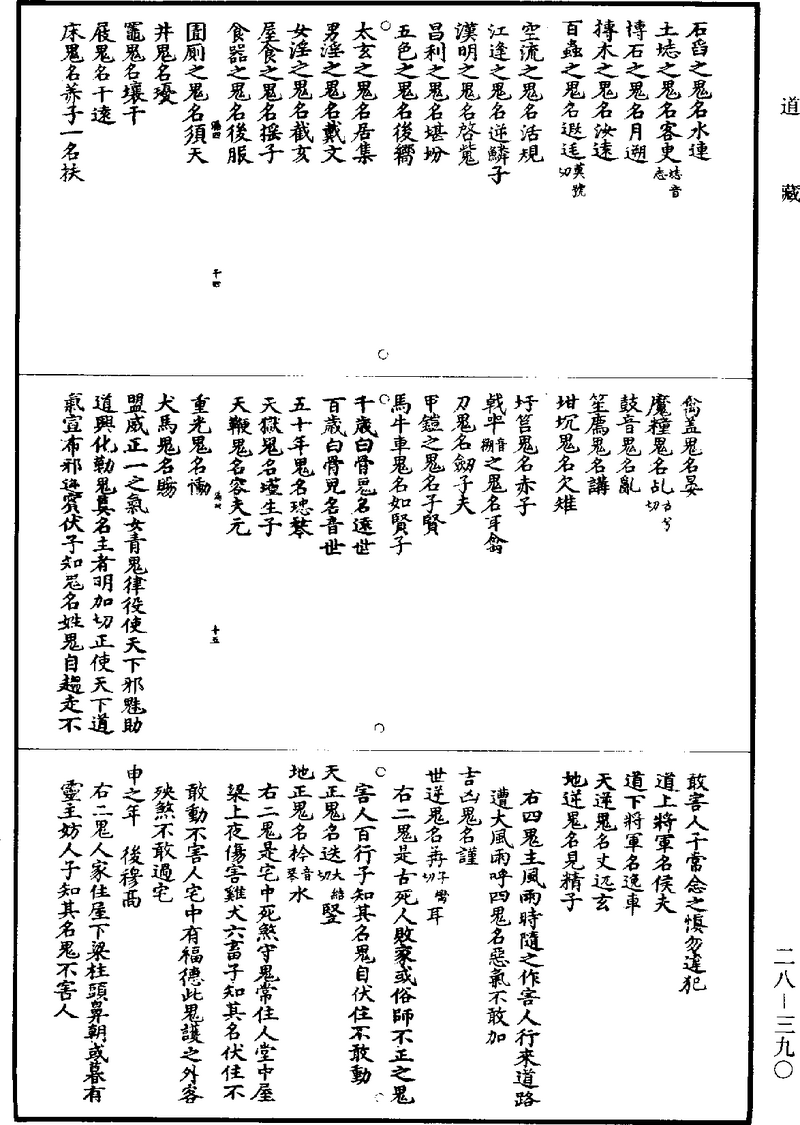 道藏
石舀之鬼名水連
土墌之鬼名客吏墌音志
博石之鬼名月遡
摶木之鬼名汝遠
百蟲之鬼名遐逗莫號切
空流之鬼名活規
江逢之鬼名逆鱗子
漢明之鬼名啓鴜
昌利之鬼名堪坋
五色之鬼名後嚮
太玄之鬼名居集
男淫之鬼名戴文
女淫之鬼名截亥
屋食之鬼名搖子
食器之鬼名後服
圊厠之鬼名須天
井鬼名瓊
竈鬼名壤干
屐鬼名千遠
床鬼名养子一名扶
禽盖鬼名晏
魔種鬼名乩切
鼓音鬼名亂
笙鷹鬼名講
坩坑鬼名欠雉
圩筥鬼名赤子
戟半音朔之鬼名耳翕
刀鬼名劒子夫
甲鎧之鬼名子賢
馬牛車鬼名如賢子
千歲白骨鬼名遠世
百歲白骨鬼名音世
五十年鬼名璁琴
天獄鬼名瑾生子
天鞭鬼名容夫元
重光鬼名慟
犬馬鬼名賜
盟威正一之氣女青鬼律役使天下邪魅助
道興化勒鬼真名主者明加切正使天下道
氣宣布邪逆賓伏子知鬼名姓鬼自趨走不
敢害人子常念之慎勿違犯
道上將軍名侯夫
道下將軍名逸車
天逆鬼名丈远玄
地逆鬼名見精子
右四鬼主風雨時隨之作害人行來道路
遭大風雨呼四鬼名惡氣不敢加
吉凶鬼名謹
世逆鬼名再切耳
右二鬼是古死人敗家或俗師不正之鬼
害人百行子知其名鬼自伏住不敢動
天正鬼名迭大結切竪
地正鬼名枔音琴水
右二鬼是宅中死煞守鬼常住人堂中屋
梁上夜傷害雞犬六畜子知其名伏住不
敢動不害人宅中有福德此鬼護之外客
殃煞不敢過宅
申之年 後穆禼
右二鬼人家住屋下梁柱頭鼻朝或暮有
靈主妨人子知其名鬼不害人
二八－三九〇